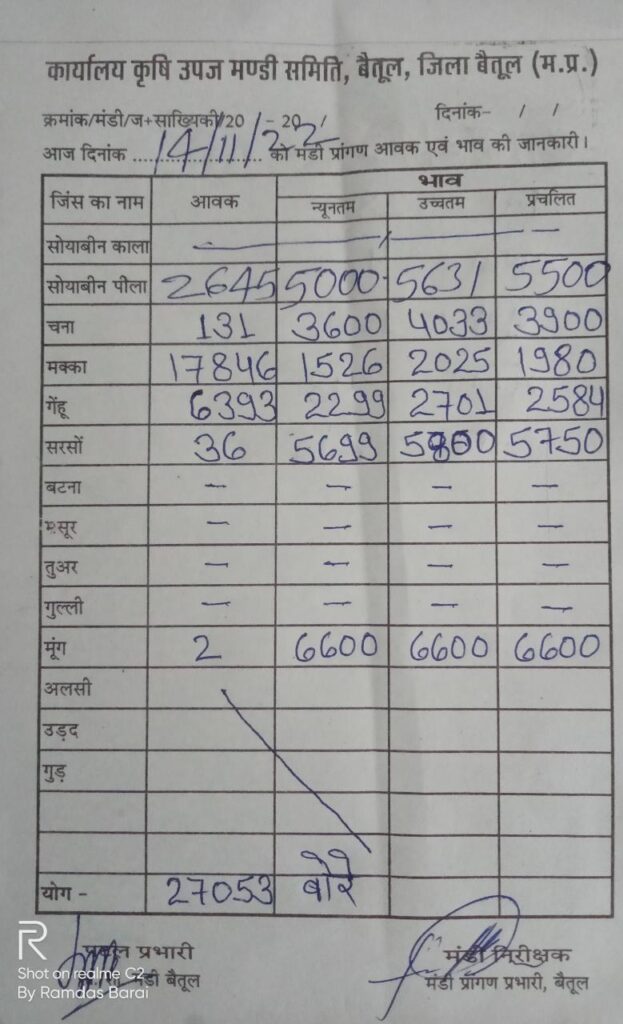 कार्यालय कृषि उपज मण्डी समिति, बैतूल, जिला बैतूल (म.प्र.)
क्रमांक/मंडी/ज+साख्यिकी/20 - 20 / दिनांक- / /
आज दिनांक 14/11/22 को मंडी प्रांगण आवक एवं भाव की जानकारी।
जिंस का नाम आवक भाव
न्यूनतम उच्चतम प्रचलित
सोयाबीन काला — — — —
सोयाबीन पीला 2645 5000 5631 5500
चना 131 3600 4033 3900
मक्का 17846 1526 2025 1980
गेंहू 6393 2299 2701 2584
सरसों 36 5699 5800 5750
बटना — — — —
मसूर — — — —
तुअर — — — —
गुल्ली — — — —
मूंग 2 6600 6600 6600
अलसी
उड़द
गुड़
योग - 27053 बोरे
प्रभारी मंडी निरीक्षक
मंडी बैतूल मंडी प्रांगण प्रभारी, बैतूल
R
Shot on realme C2
By Ramdas Barai